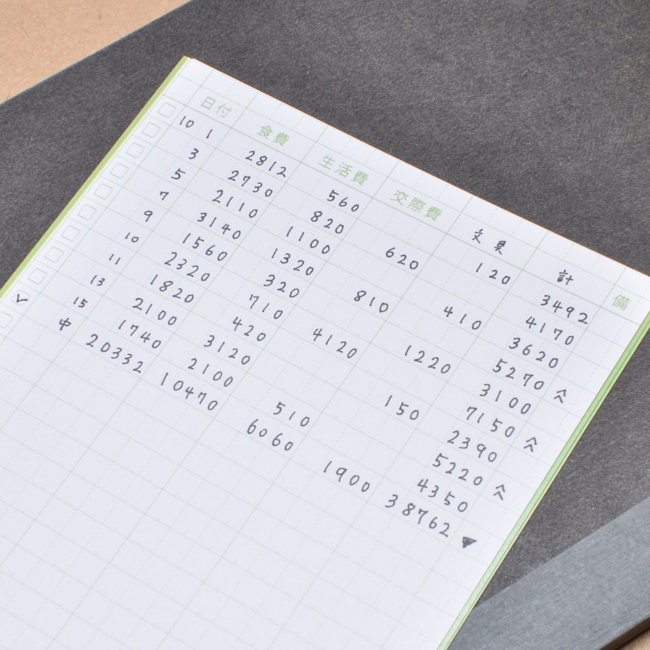 日付 食費 生活費 交際費 文具 計 備
10 1 2812 560 120 3492
3 2730 820 620 4170
5 2110 1100 410 3620
7 3140 1320 810 5270 ︽
9 1560 320 1220 3100
10 2320 710 4120 7150 ︽
11 1820 420 150 2390
13 2100 3120 5220 ︽
15 1740 2100 510 4350
✓ 中 20332 10470 6060 1900 38762 ▼